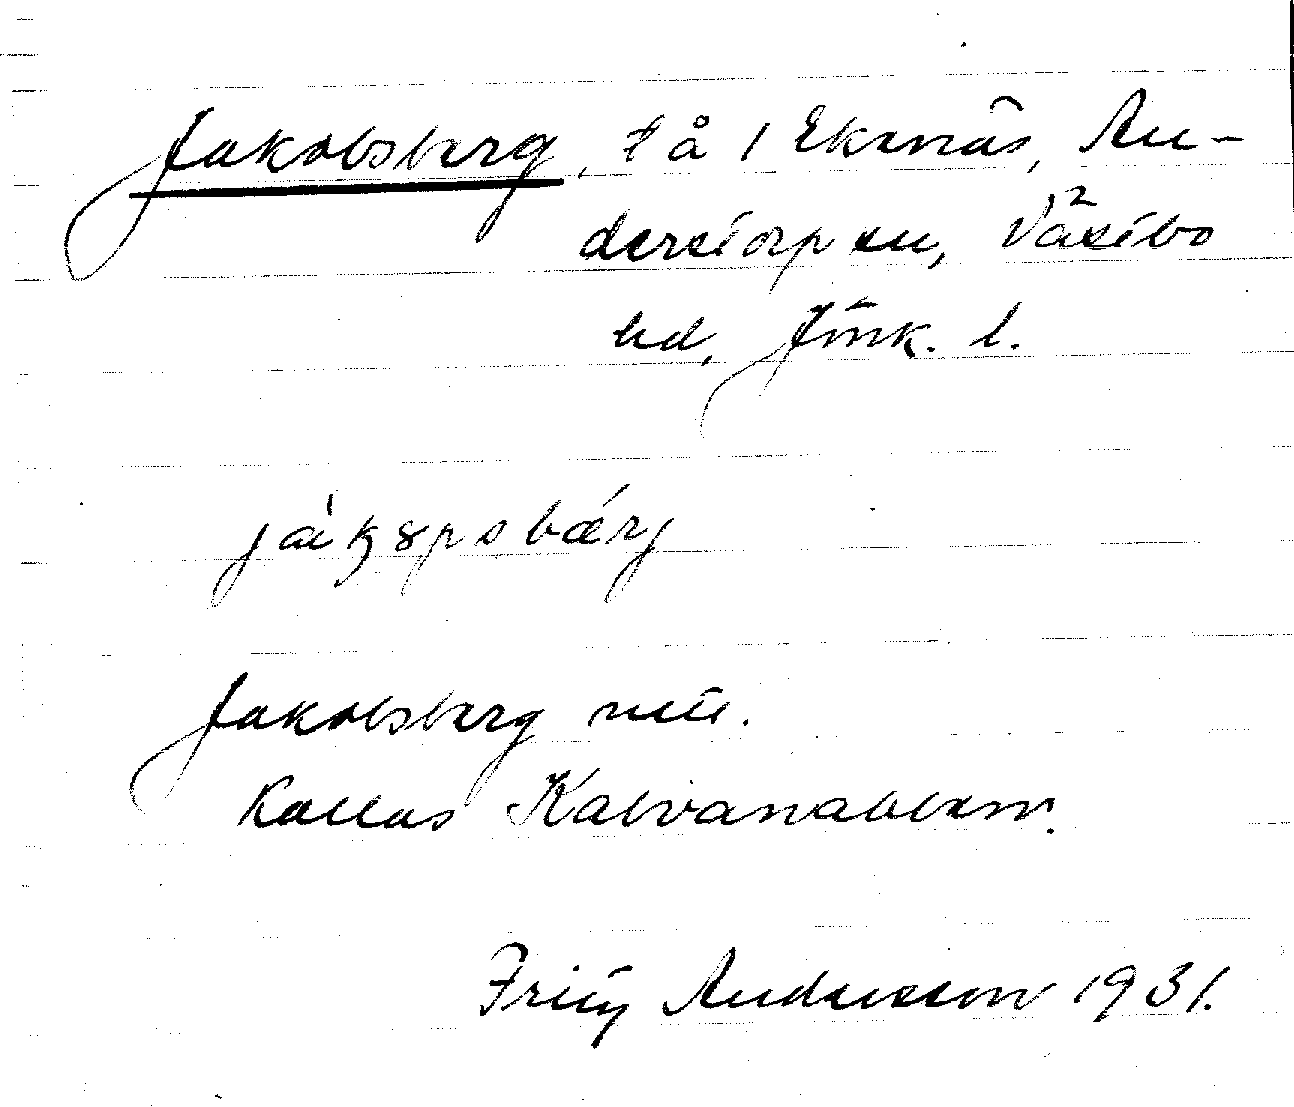 Jakobsberg, t å 1 Ekenäs, An-
derstorp sn, Västbo
hd, Jönk. l.
jàkɣpsbærj
Jakobsberg
Kallas Kalvanabben.
Fritz Andersson 1931.